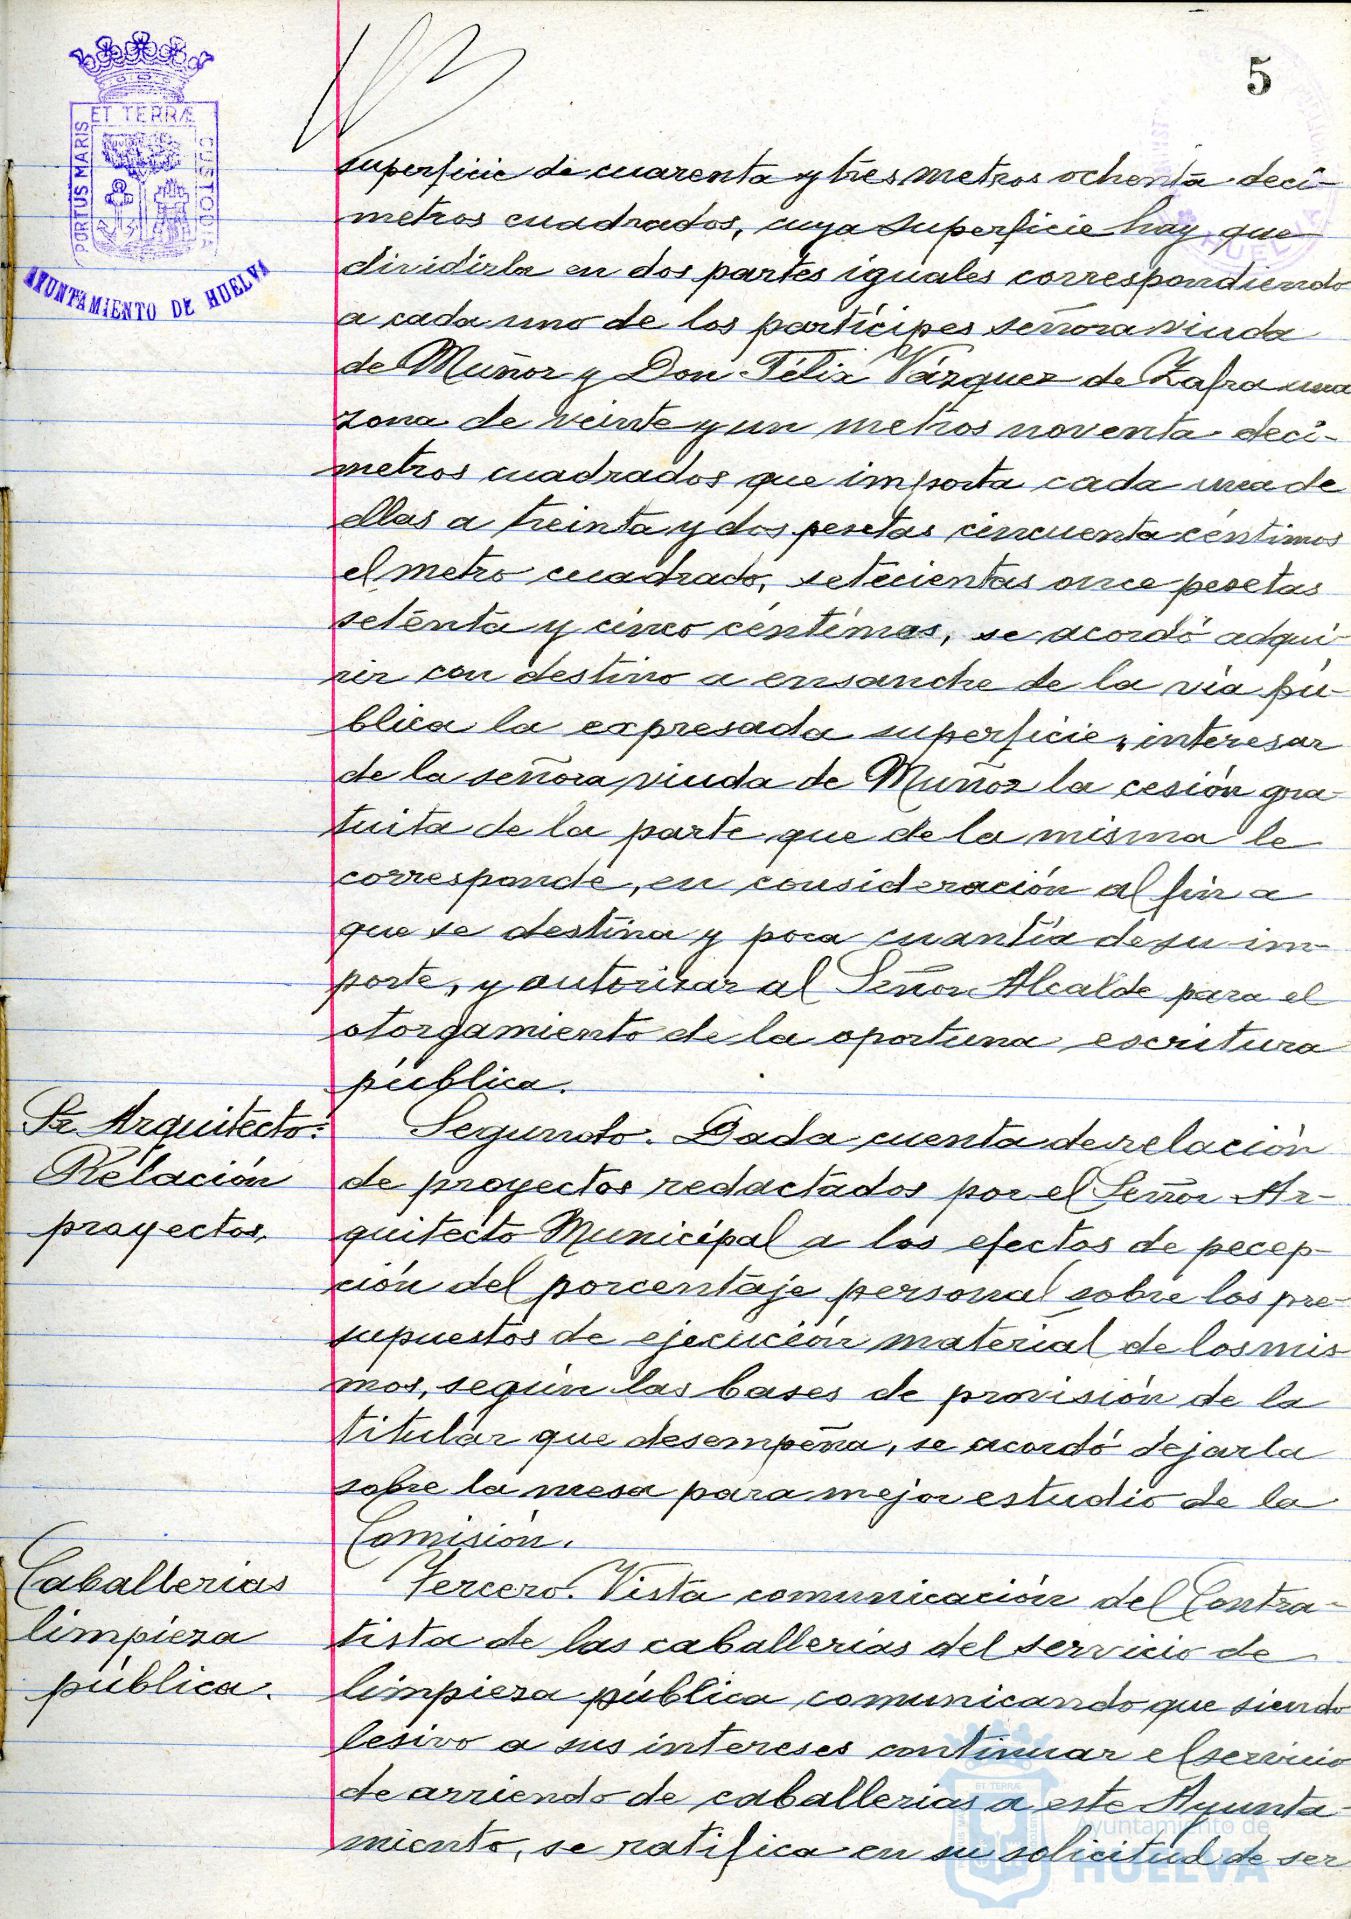 5
PORTUS MARIS ET TERRÆ CUSTODIA
AYUNTAMIENTO DE HUELVA
HUELVA
superficie de cuarenta y tres metros ochenta decí-
metros cuadrados, cuya superficie hay que
dividirla en dos partes iguales correspondiendo
a cada uno de los partícipes señora viuda
de Muñoz y Don Félix Vázquez de Zafra una
zona de veinte y un metros noventa decí-
metros cuadrados que importa cada una de
ellas a treinta y dos pesetas cincuenta céntimos
el metro cuadrado, setecientas once pesetas
setenta y cinco céntimos, se acordó adqui-
rir con destino a ensanche de la vía pú-
blica la expresada superficie, interesar
de la señora viuda de Muñoz la cesión gra-
tuita de la parte que de la misma le
corresponde, en consideración al fin a
que se destina y poca cuantía de su im-
porte, y autorizar al Señor Alcalde para el
otorgamiento de la oportuna escritura
pública.
Sr Arquitecto:
Relación
proyectos.
Segundo. Dada cuenta de relación
de proyectos redactados por el Señor Ar-
quitecto Municipal a los efectos de pecep-
ción del porcentaje personal sobre los pre-
supuestos de ejecución material de los mis-
mos, según las bases de provisión de la
titular que desempeña, se acordó dejarla
sobre la mesa para mejor estudio de la
Comisión.
Caballerias
limpieza
pública.
Tercero. Vista comunicación del Contra-
tista de las caballerías del servicio de
limpieza pública comunicando que siendo
lesivo a sus intereses continuar el servicio
de arriendo de caballerias a este Ayunta-
miento, se ratifica en su solicitud de ser
Ayuntamiento de
HUELVA